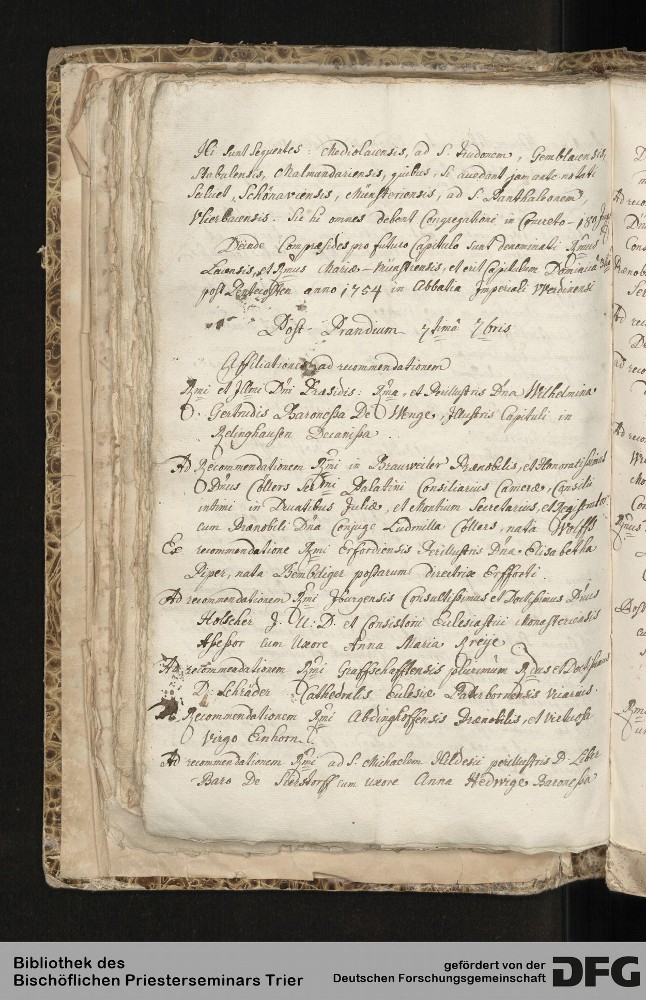 Hi sunt sequentes: Mediolacensis, ad S. Trudonem, Gemblacensis,
Stabulensis, Malmundariensis, quibus, si accedant jam ante notati
scilicet, Schönaviensis, Münsteriensis, ad S. Panthaleonem,
Vlierbacensis. Sic hi omnes debent Congregationi in Concreto - 180
Deinde Compræsides pro futuro Capitulo sunt denominati Rmus
Lacensis, et Rmus Mariæ-Münstrensis, et erit Capitulum Dominica
post Pentecosten anno 1754 in Abbatia Imperiali Werdinensi
Post-Prandium 7tima 7bris
Affiliationes ad recommendationem
Rmi et Illmi Dni Præsidis: Rma, et Perillustris Dna Wilhelmina
Gertrudis Baronessa De Wenge, Illustris Capituli in
Relinghausen Decanissa.
Ad Recommendationem Rmi in Brauweiler Prænobilis, et Honoratissimus
Dnus Collers Sermi Palatini Consiliarius Cameræ, Consilii
intimi in Ducatibus Juliæ, et Montium Secretarius, et Registrator
cum Prænobili Dna Conjuge Ludmilla Collers, nata Wolffs
Ex recommendatione Rmi Erfordiensis Perillustris Dna Elisabetha
Piper, nata postarum directrix Erfforti
Ad recommendationem Rmi Iburgensis Consultissimus et Doctissimus Dnus
Holscher J. U. D. et Consistorii Ecclesiastici Monasteriensis
Assessor cum Uxore Anna Maria
Ad recommendationem Rmi Graffschafftensis plurimum Rdus et Doctissimus
D. Schräder Cathedralis Ecclesiæ Paderbornensis Vicarius.
Ad Recommendationem Rmi Abdinghoffensis Prænobilis, et Virtuosa
Virgo Einhorn
Ad recommendationem Rmi ad S. Michaelem Hildesii perillustris D. Liber
Baro De cum uxore Anna Hedwige Baronessa
Bibliothek des
Bischöflichen Priesterseminars Trier
gefördert von der
Deutschen Forschungsgemeinschaft
DFG